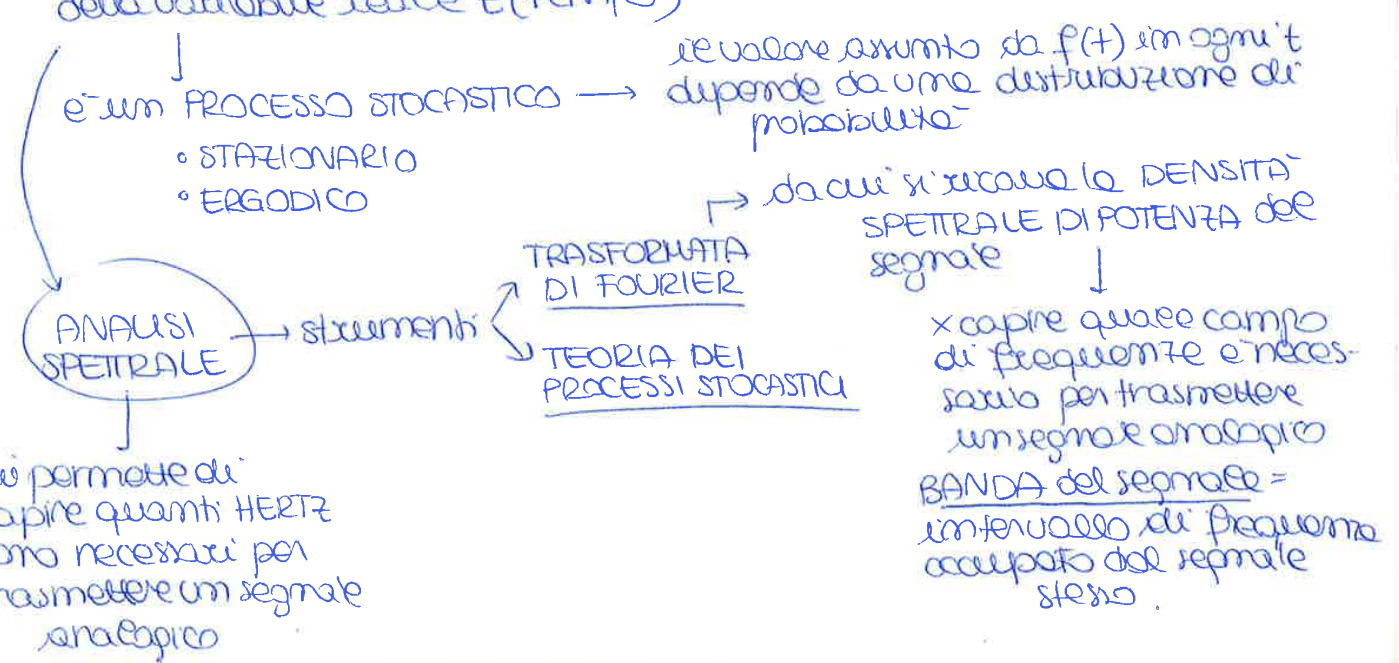 della variabile reale t (tempo)
è un PROCESSO STOCASTICO → il valore assunto da f(t) in ogni t
dipende da una distribuzione di
probabilità
• STAZIONARIO
• ERGODICO
ANALISI
SPETTRALE
→ strumenti
TRASFORMATA
DI FOURIER
TEORIA DEI
PROCESSI STOCASTICI
→ da cui si ricava la DENSITÀ
SPETTRALE DI POTENZA del
segnale
x capire quale campo
di frequenze è neces-
sario per trasmettere
un segnale analogico
BANDA del segnale =
intervallo di frequenze
occupato dal segnale
stesso.
permette di
capire quanti HERTZ
sono necessari per
trasmettere un segnale
analogico